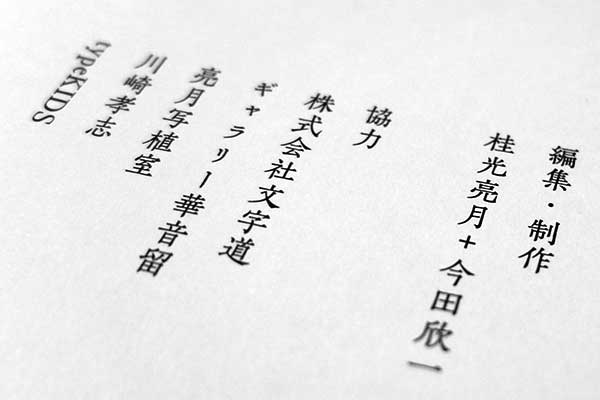 編集・制作
桂光亮月+今田欣一
協力
株式会社文字道
ギャラリー華音留
亮月写植室
川崎孝志
typeKIDS